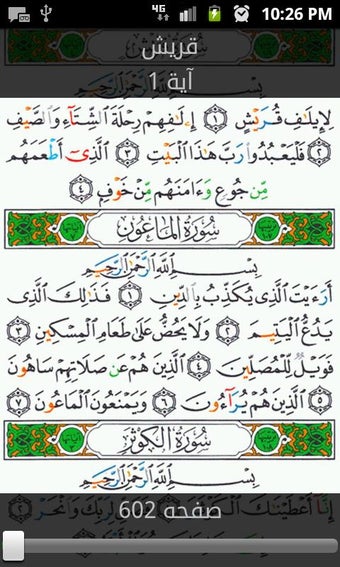 10:26 PM
قريش
آية 1
بِسْمِ ٱللَّهِ ٱلرَّحْمَٰنِ ٱلرَّحِيمِ
لِإِيلَٰفِ قُرَيْشٍ ١ إِۦلَٰفِهِمْ رِحْلَةَ ٱلشِّتَآءِ وَٱلصَّيْفِ
٢ فَلْيَعْبُدُوا۟ رَبَّ هَٰذَا ٱلْبَيْتِ ٣ ٱلَّذِىٓ أَطْعَمَهُم
مِّن جُوعٍ وَءَامَنَهُم مِّنْ خَوْفٍۭ ٤
سُورَةُ المَاعُونِ
بِسْمِ ٱللَّهِ ٱلرَّحْمَٰنِ ٱلرَّحِيمِ
أَرَءَيْتَ ٱلَّذِى يُكَذِّبُ بِٱلدِّينِ ١ فَذَٰلِكَ ٱلَّذِى
يَدُعُّ ٱلْيَتِيمَ ٢ وَلَا يَحُضُّ عَلَىٰ طَعَامِ ٱلْمِسْكِينِ ٣
فَوَيْلٌ لِّلْمُصَلِّينَ ٤ ٱلَّذِينَ هُمْ عَن صَلَاتِهِمْ سَاهُونَ
٥ ٱلَّذِينَ هُمْ يُرَآءُونَ ٦ وَيَمْنَعُونَ ٱلْمَاعُونَ ٧
سُورَةُ الكَوْثَرِ
بِسْمِ ٱللَّهِ ٱلرَّحْمَٰنِ ٱلرَّحِيمِ
صفحه 602